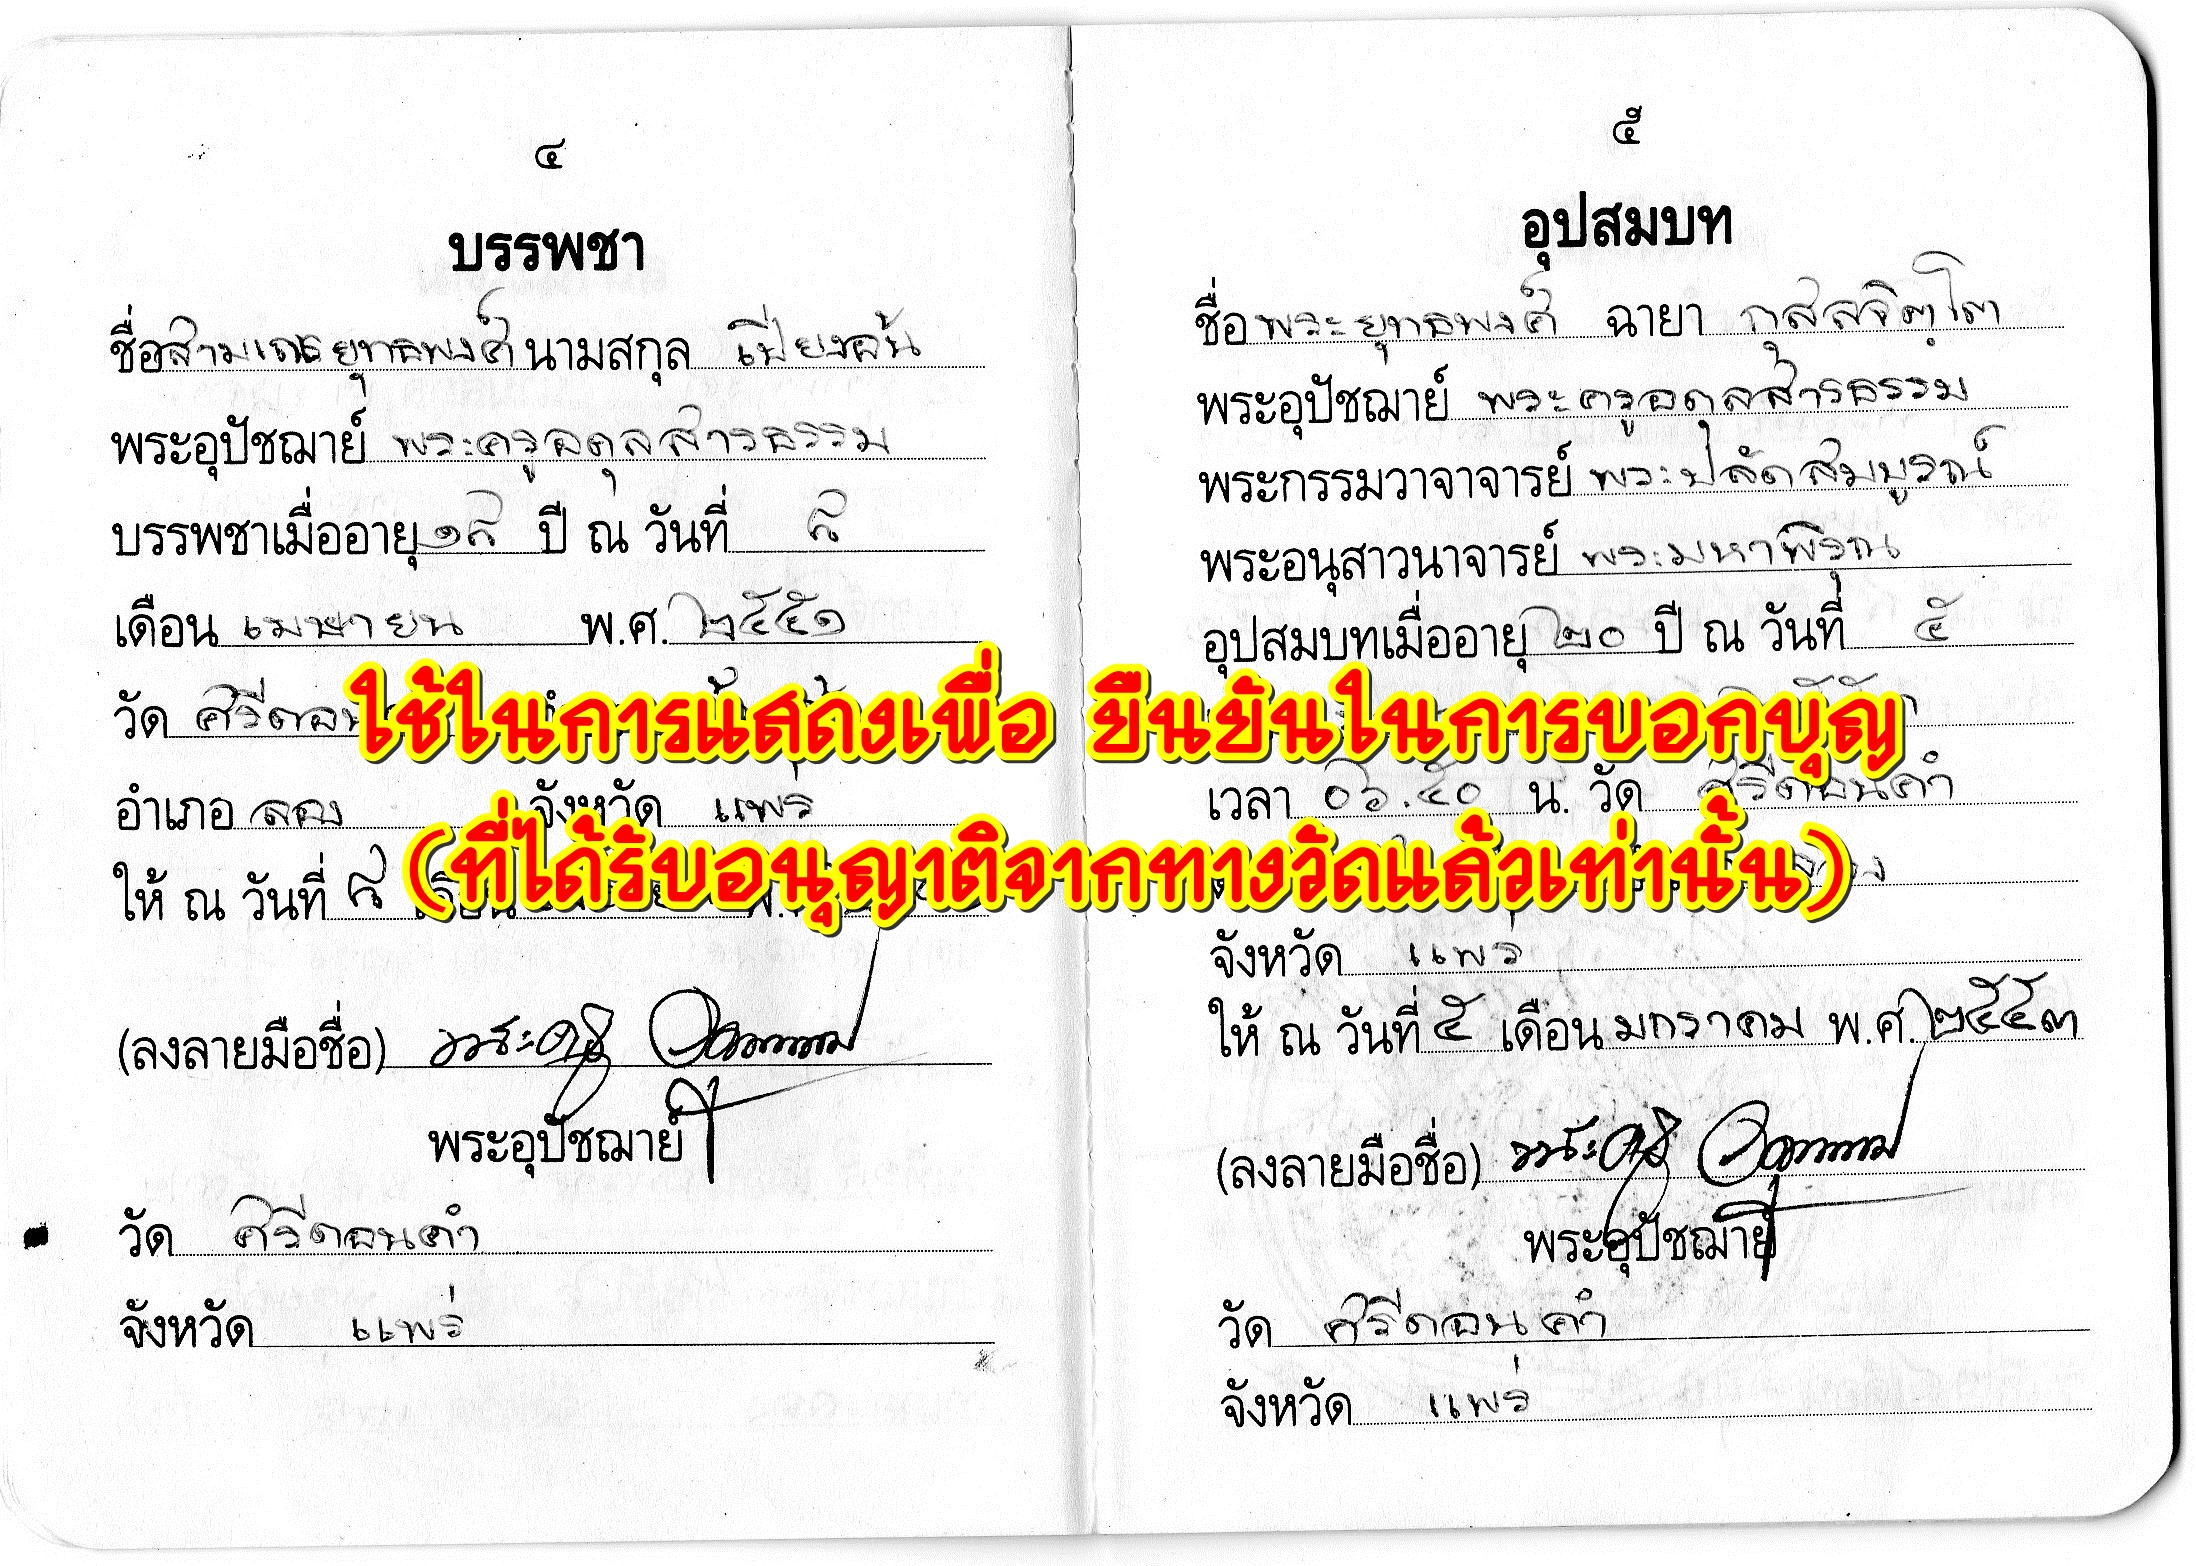 ๔
บรรพชา
ชื่อสามเณรยุทธพงศ์ นามสกุล เปียงล้น
พระอุปัชฌาย์ พระครูอดุลสารธรรม
บรรพชาเมื่ออายุ ๑๘ ปี ณ วันที่ ๘
เดือน เมษายน พ.ศ. ๒๕๕๑
วัด ศรีดอน
อำเภอ ลอง จังหวัด แพร่
ให้ ณ วันที่ ๘
(ลงลายมือชื่อ) พระครู
พระอุปัชฌาย์
วัด ศรีดอนคำ
จังหวัด แพร่
๕
อุปสมบท
ชื่อ พระยุทธพงศ์ ฉายา กุสลจิตฺโต
พระอุปัชฌาย์ พระครูอดุลสารธรรม
พระกรรมวาจาจารย์ พระปลัดสมบูรณ์
พระอนุสาวนาจารย์ พระมหาพิรุณ
อุปสมบทเมื่ออายุ ๒๐ ปี ณ วันที่ ๕
เวลา ๐๖.๔๐ น. วัด ศรีดอนคำ
จังหวัด แพร่
ให้ ณ วันที่ ๕ เดือน มกราคม พ.ศ. ๒๕๕๓
(ลงลายมือชื่อ) พระครู
พระอุปัชฌาย์
วัด ศรีดอนคำ
จังหวัด แพร่
ใช้ในการแสดงเพื่อ ยืนยันในการบอกบุญ
(ที่ได้รับอนุญาติจากทางวัดแล้วเท่านั้น)